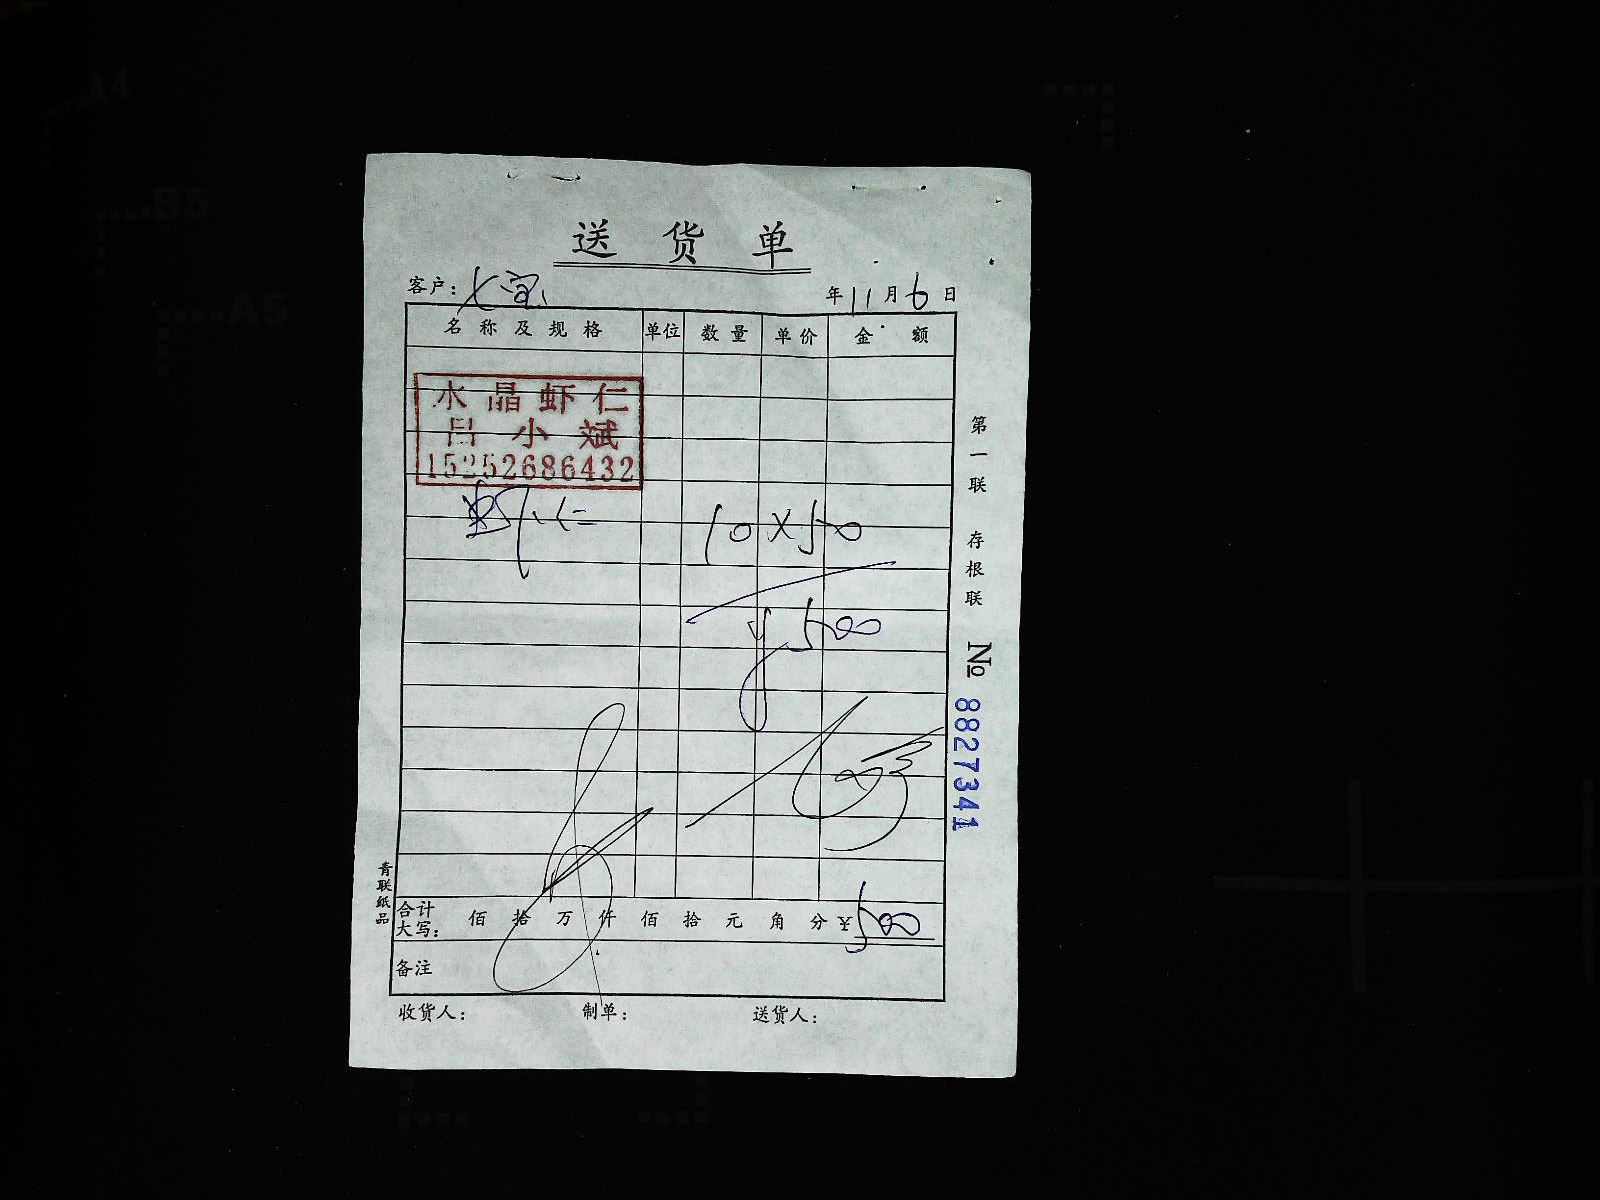 送货单
客户：大宝 年11月6日
名称及规格 单位 数量 单价 金额
水晶虾仁
吕小斌
15252686432
虾仁 10×50
¥500
合计大写： 佰 拾 万 仟 佰 拾 元 角 分 ¥500
备注
收货人： 制单： 送货人：
第一联 存根联
№ 8827341
青联纸品
A4
B5
A5